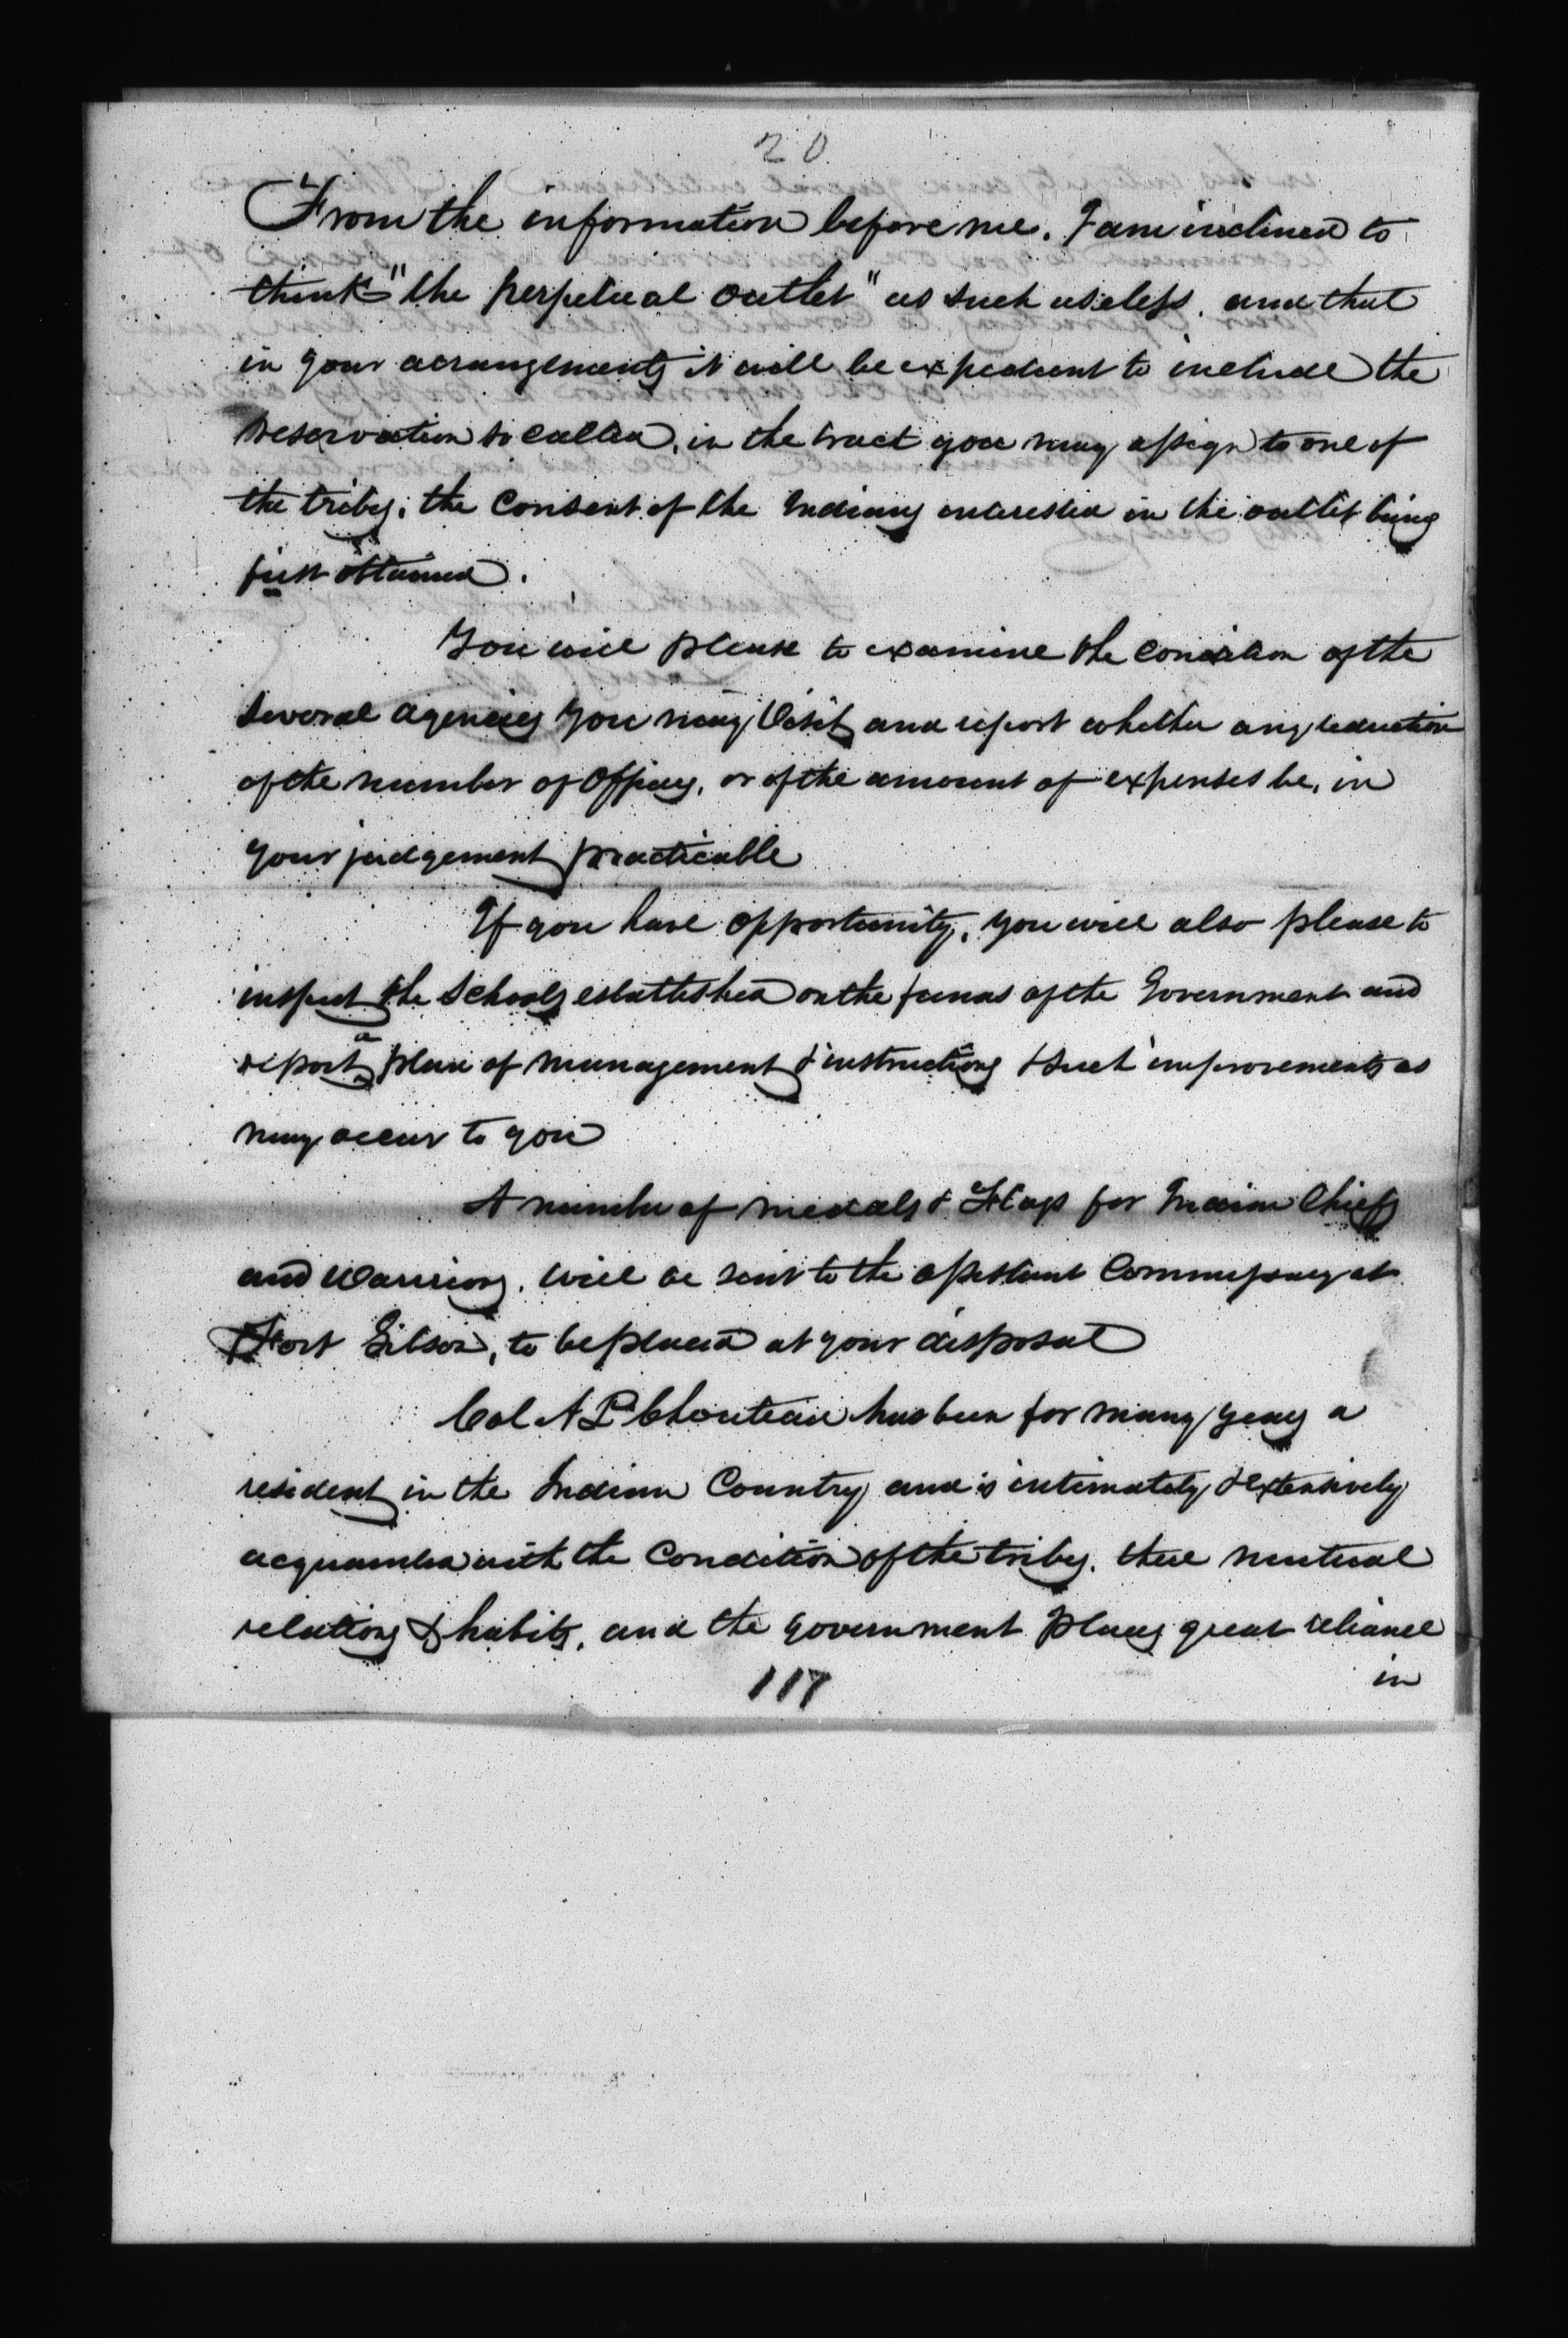 20
From the information before me. I am inclined to
think "the perpetual outlet" as such useless. and that
in your arrangements it will be expedient to include the
reservation so called, in the tract you may assign to one of
the tribes, the Consent of the Indians interested in the outlet being
first obtained.
You will please to examine the condition of the
several agencies you may Visit and report whether any reduction
of the number of Officers, or of the amount of expenses be, in
your judgement practicable
If you have opportunity, you will also please to
inspect the Schools established on the funds of the Government and
report a plan of management & instructions & such improvements as
may occur to you
A number of medals & Flags for Indian Chiefs
and Warriors, will be sent to the assistant Commissary at
Fort Gibson, to be placed at your disposal
Col A P Chouteau has been for many years a
resident in the Indian Country and is intimately & extensively
acquainted with the Condition of the tribes. their mutual
relations & habits, and the government places great reliance
in
117